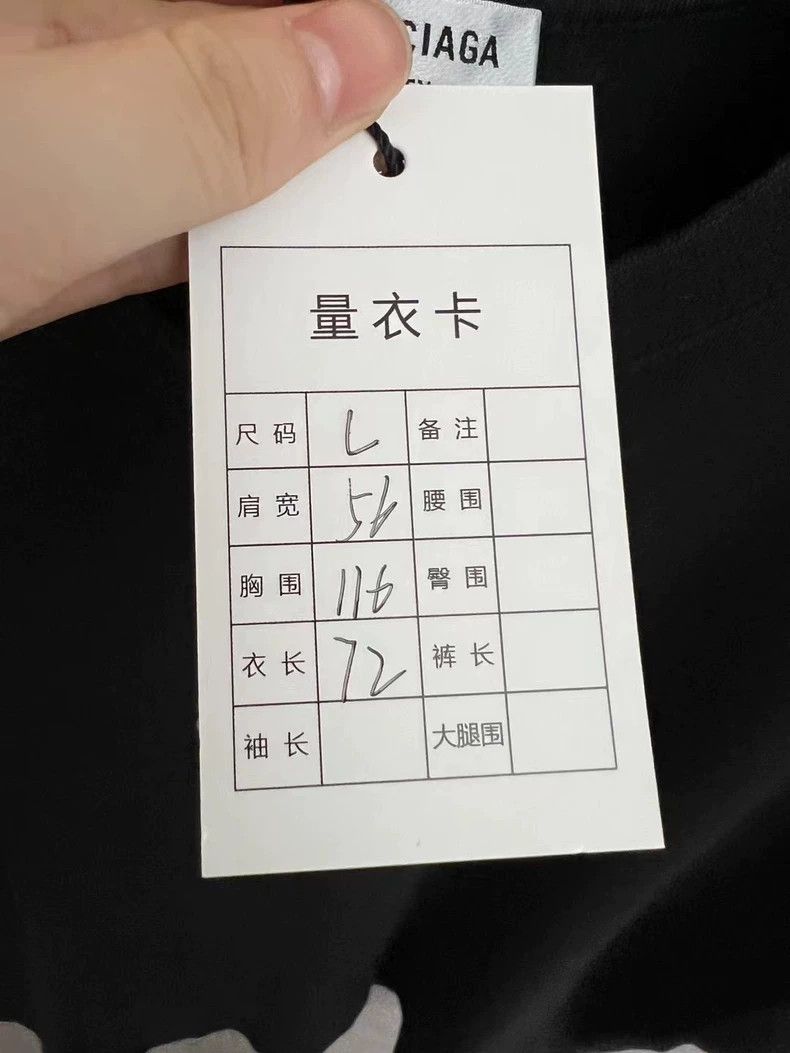 CIAGA
量衣卡
尺码 L 备注
肩宽 54 腰围
胸围 116 臀围
衣长 72 裤长
袖长 大腿围